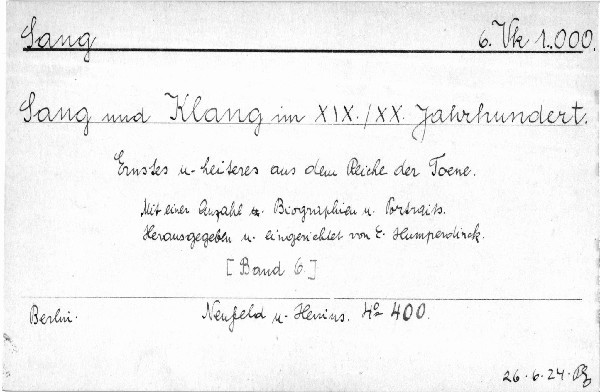 Sang 6. Vk 1.000.
Sang und Klang im XIX./XX. Jahrhundert.
Ernstes u. heiteres aus dem Reiche der Toene.
Mit einer Anzahl v. Biographien u. Portraits.
Herausgegeben u. eingerichtet von E. Humperdinck.
[Band 6.]
Berlin. Neufeld u. Henius. 4° 400.
26.6.24.